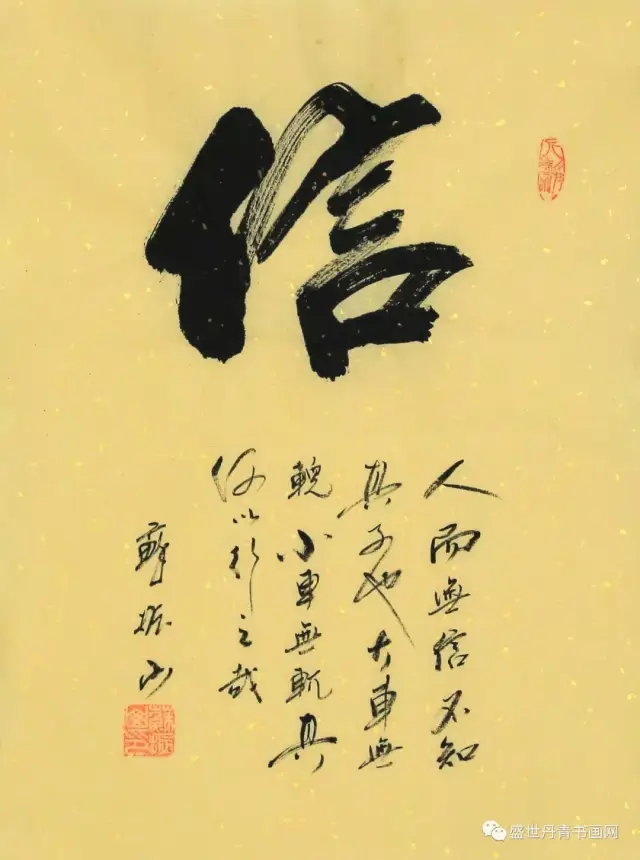 信
人而無信不知
其可也大車無
輗小車無軏其
何以行之哉
蘇振山
盛世丹青书画网